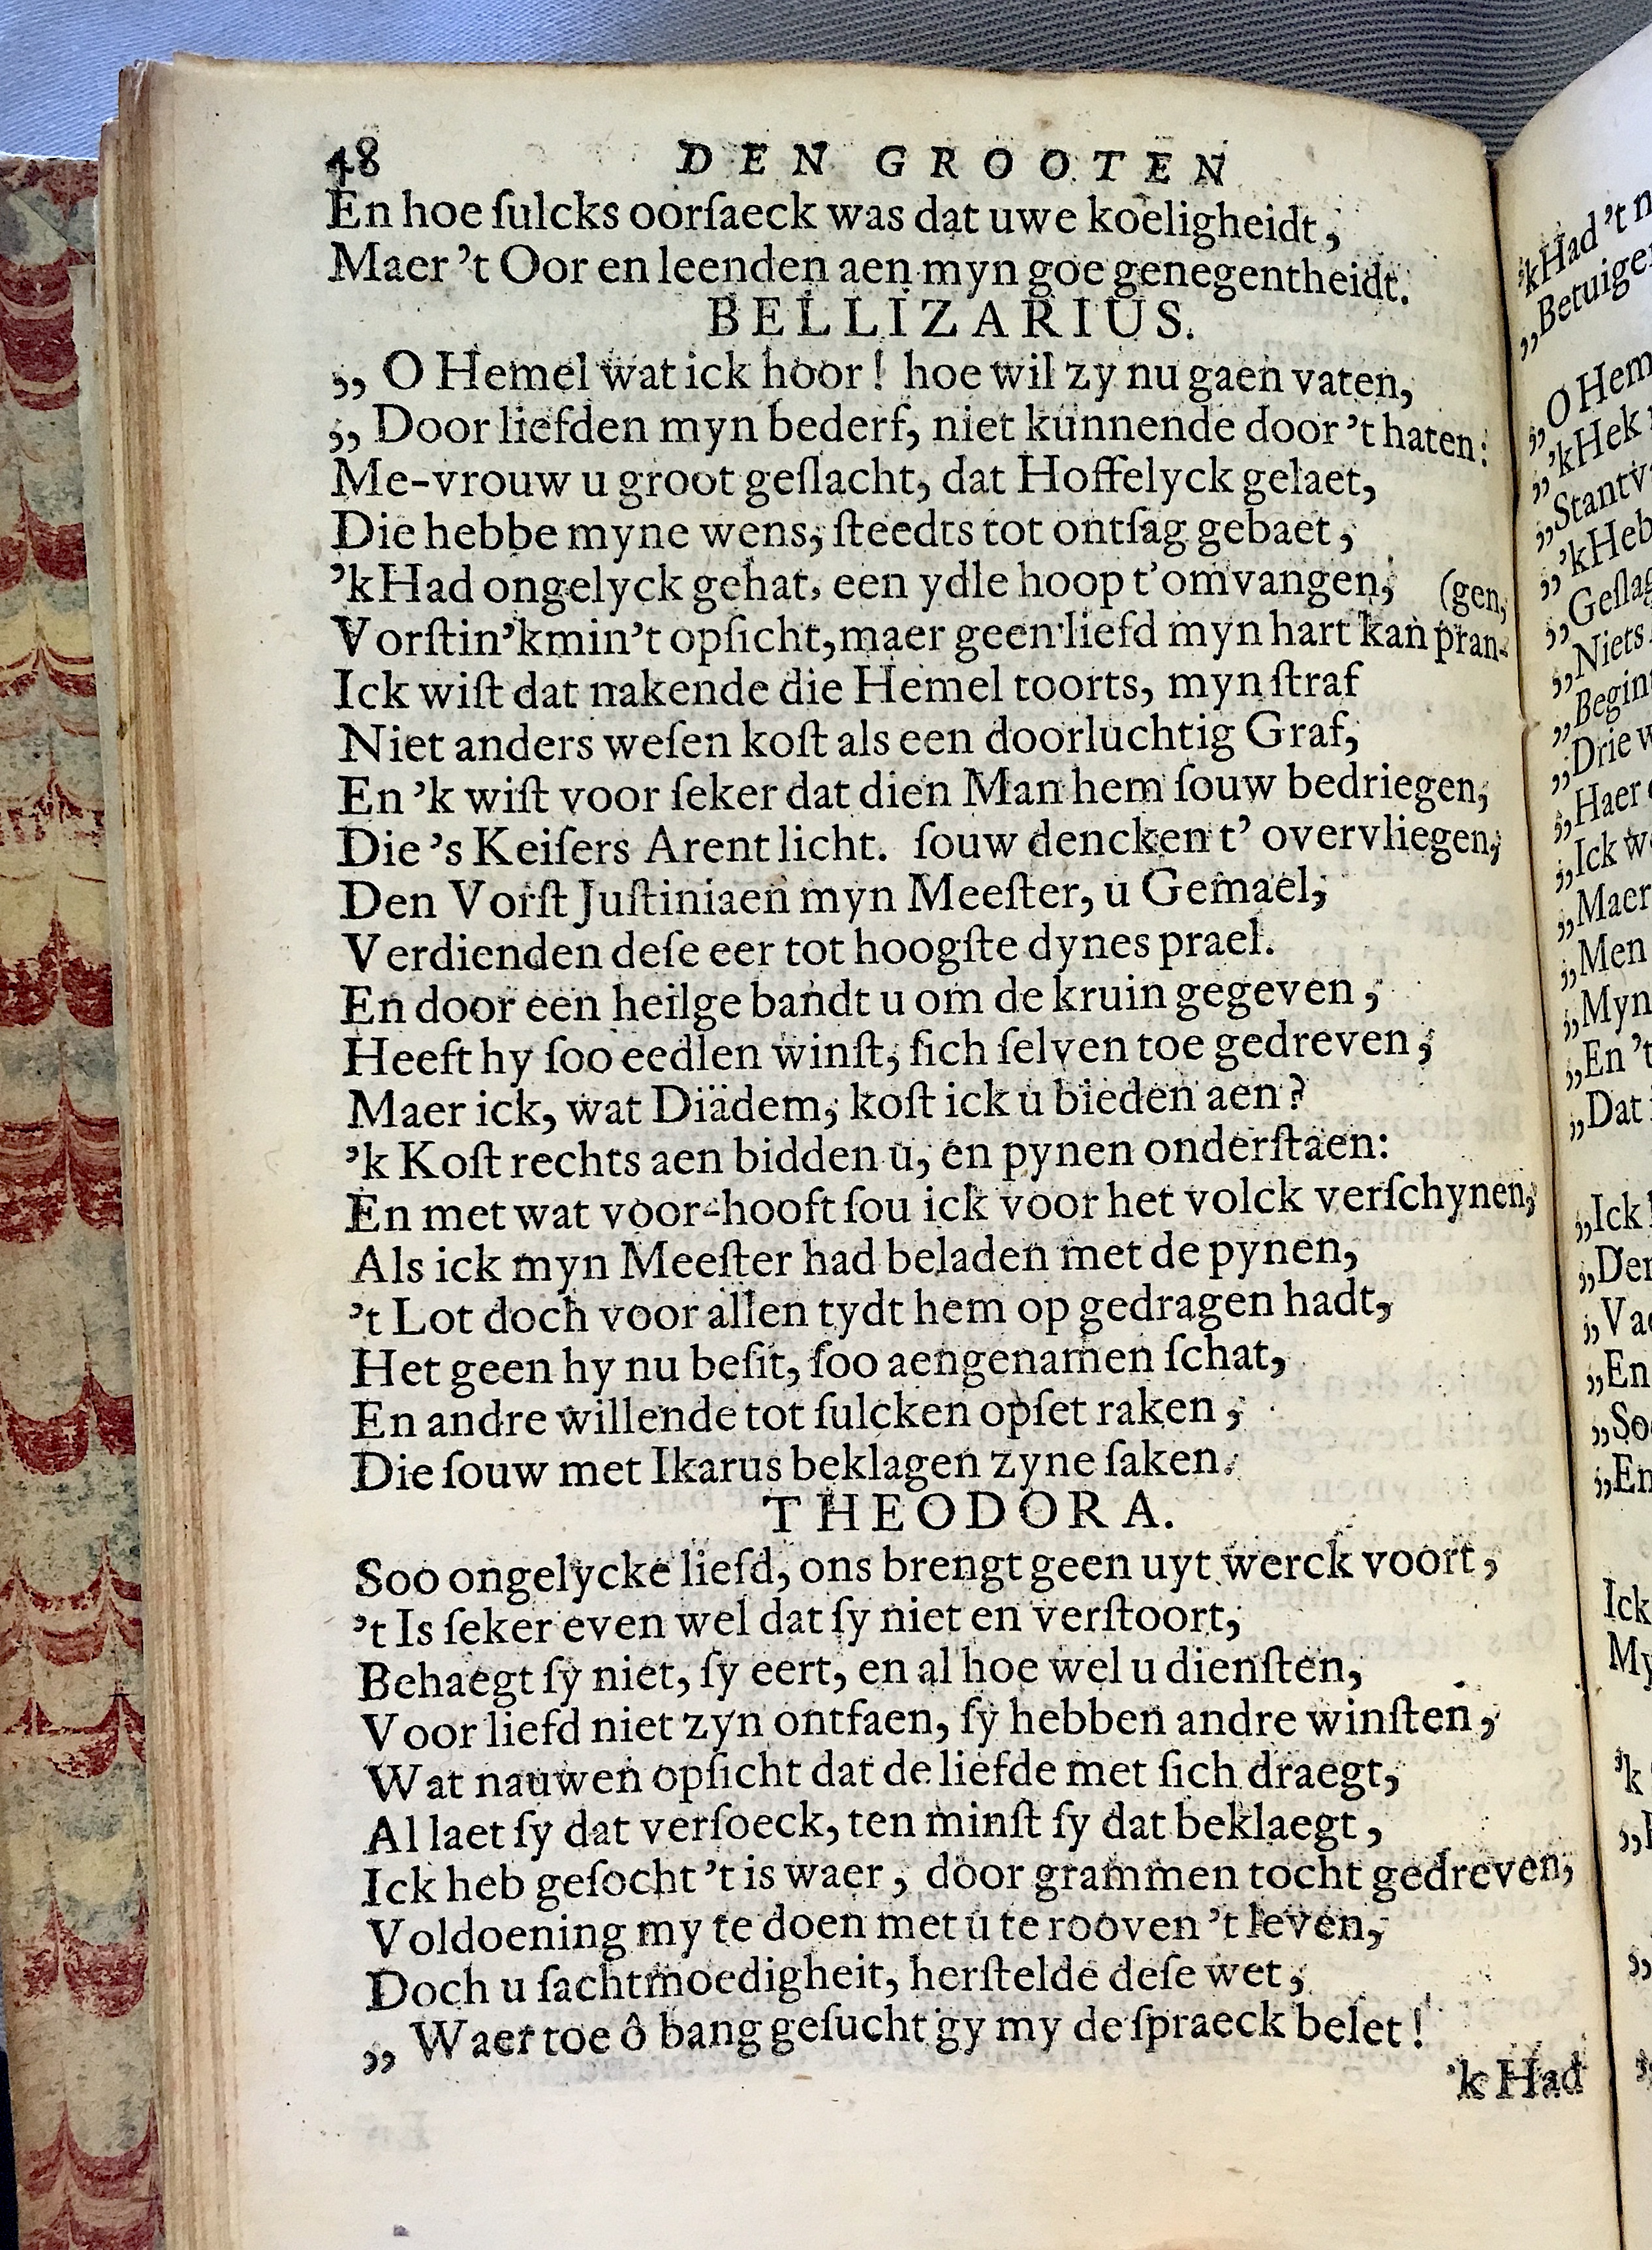 48 DEN GROOTEN
En hoe ſulcks oorſaeck was dat uwe koeligheidt,
Maer ’t Oor en leenden aen myn goe genegentheidt.
BELLIZARIUS.
„ O Hemel wat ick hoor! hoe wil zy nu gaen vaten,
„ Door liefden myn bederf, niet kunnende door ’t haten:
Me-vrouw u groot geſlacht, dat Hoffelyck gelaet,
Die hebbe myne wens, ſteedts tot ontſag gebaet,
’k Had ongelyck gehat, een ydle hoop t’omvangen,
(gen,
Vorſtin ’k min ’t opſicht, maer geen liefd myn hart kan pran-
Ick wiſt dat nakende die Hemel toorts, myn ſtraf
Niet anders weſen koſt als een doorluchtig Graf,
En ’k wiſt voor ſeker dat dien Man hem ſouw bedriegen,
Die ’s Keiſers Arent licht. ſouw dencken t’ overvliegen,
Den Vorſt Juſtiniaen myn Meeſter, u Gemael,
Verdienden deſe eer tot hoogſte dynes prael.
En door een heilge bandt u om de kruin gegeven,
Heeft hy ſoo eedlen winſt, ſich ſelven toe gedreven,
Maer ick, wat Diädem, koſt ick u bieden aen?
’k Koſt rechts aen bidden u, en pynen onderſtaen:
En met wat voor-hooft ſou ick voor het volck verſchynen,
Als ick myn Meeſter had beladen met de pynen,
’t Lot doch voor allen tydt hem op gedragen hadt,
Het geen hy nu beſit, ſoo aengenamen ſchat,
En andre willende tot ſulcken opſet raken,
Die ſouw met Ikarus beklagen zyne ſaken.
THEODORA.
Soo ongelycke liefd, ons brengt geen uyt werck voort,
’t Is ſeker even wel dat ſy niet en verſtoort,
Behaegt ſy niet, ſy eert, en al hoe wel u dienſten,
Voor liefd niet zyn ontfaen, ſy hebben andre winſten,
Wat nauwen opſicht dat de liefde met ſich draegt,
Al laet ſy dat verſoeck, ten minſt ſy dat beklaegt,
Ick heb geſocht ’t is waer, door grammen tocht gedreven,
Voldoening my te doen met u te rooven ’t leven,
Doch u ſachtmoedigheit, herſtelde deſe wet,
„ Waer toe ô bang geſucht gy my de ſpraeck belet!
’k Had
’kHad ’t
„Betuige
„O Hem
„’kHek
„Stantv
„’kHeb
„Geſlag
„Niets
„Begin
„Drie
„Haer
„Ick
„Maer
„Men
„Myn
„En ’t
„Dat
„Ick
„Der
„Va
„En
„So
„En
Ick
My
’k